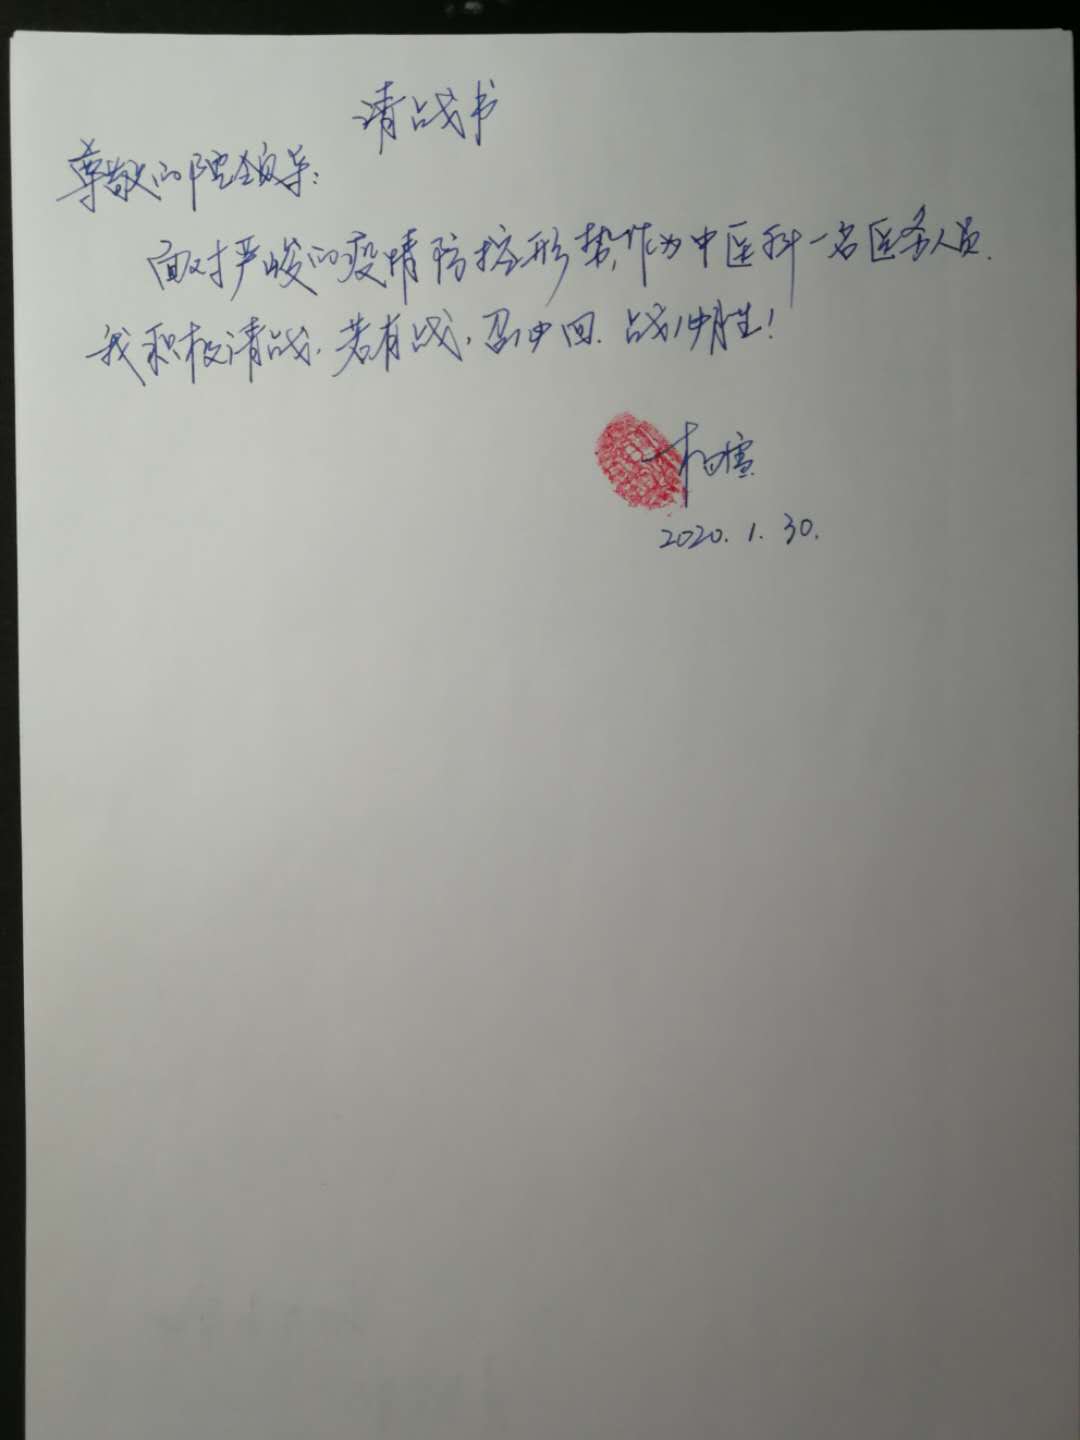 请战书
尊敬的院领导:
面对严峻的疫情防控形势,作为中医科一名医务人员.
我积极请战.若有战,召必回.战必胜!
2020.1.30.